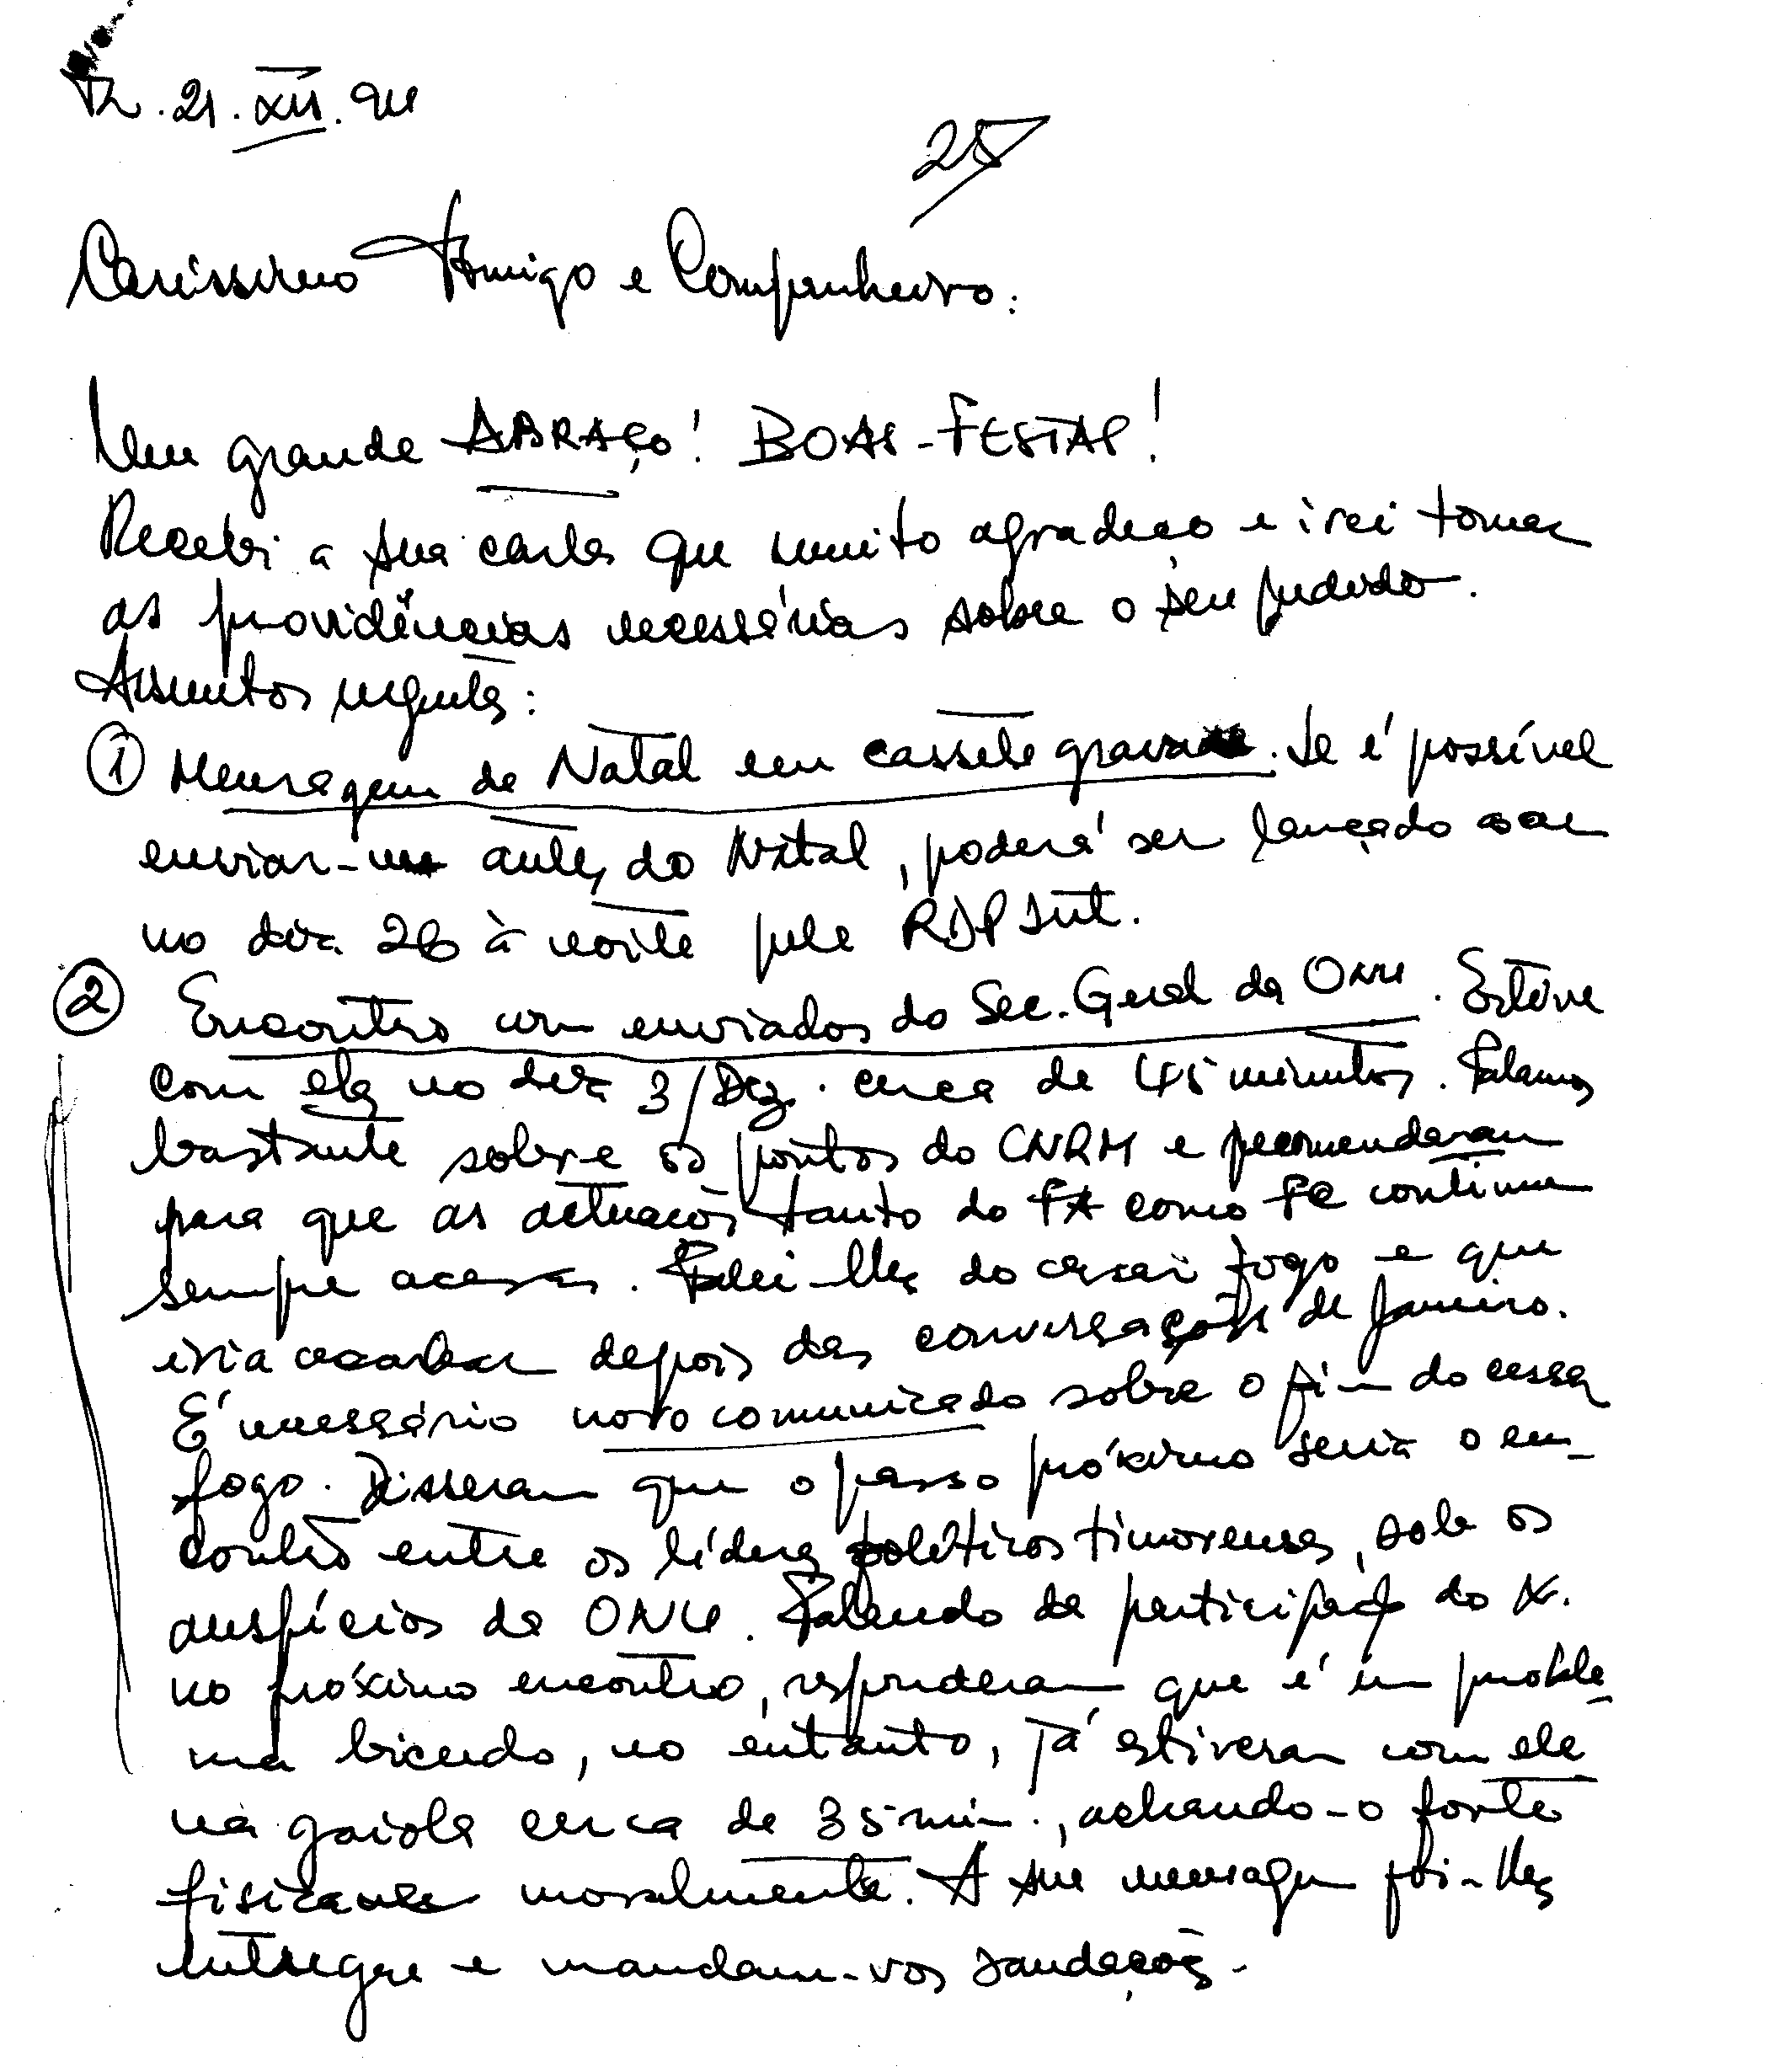 21.XII.94
25
Caríssimo Amigo e Companheiro:
Um grande ABRAÇO! BOAS-FESTAS!
Recebi a sua carta que muito agradeço e irei tomar
as providências necessárias sobre o seu pedido.
Assuntos urgentes:
① Mensagem de Natal em cassete gravada. Se é possível
enviar-me antes do Natal, poderá ser lançado ao ar
no dia 26 à noite pela RDP Int.
② Encontro com enviados do Sec. Geral da ONU. Estive
com eles no dia 3/Dez. cerca de 45 minutos. Falamos
bastante sobre os pontos do CNRM e recomendaram
para que as actuações tanto do FA como FC continue
sempre acesas. Falei-lhes do cessar fogo e que
iria acabar depois das conversações de Janeiro.
É necessário novo comunicado sobre o fim do cessar
fogo. Disseram que o passo próximo seria o en-
contro entre os líderes políticos timorenses, sob os
auspícios da ONU. Falando da participação do X.
no próximo encontro, responderam que é um proble-
ma bicudo, no entanto, já estiveram com ele
na gaiola cerca de 35 min., achando-o forte
fisica e moralmente. A sua mensagem foi-lhes
entregue e mandam-vos saudações.